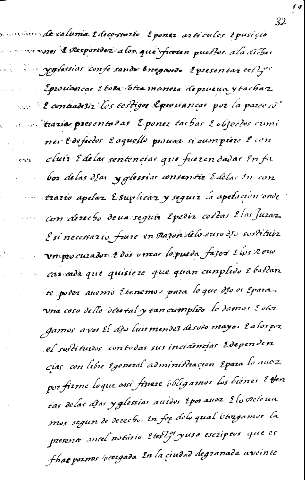 32
de calunia E decysorio E poner articulos E pusiçio
nes E Responder a los que fueren puestos a la dichas
yglesias confesando E negando E presentar testigos
E provanças E toda otra manera de prueva y tachar
E contradezir los testigos E provanças por la parte
trarias presentadas E poner tachas E objectos crimi
nes E defectos E aquello provar si cumpliere E con
cluir E de las sentencias que fueren dadas En fa
bor de las dhas yglesias consentir E de las En con
trario apelar E suplicar y seguir la apelaçion onde
con derecho deva seguir E pedir costas E las Jurar
E si necesario fuere en Razon de lo suso dho sostituir
un procurador E dos o mas lo pueda fazer E los Revo
car cada que quisiere que quan cumplido E bastan
te poder avemos E tenemos para lo que dho es E para
una cosa dello E otro tal y tan cumplido lo damos E otor
gamos a vos El dho luis mendes de soto mayor E a los por
el sostituidos con todas sus incidencias E dependen
cias con libre E general administracion E para lo aver
por firme lo que asi fiziere obligamos los bienes E Ren
tas de las dhas yglesias avidos E por aver E los Releva
mos segun de derecho En fe de lo qual otorgamos la
presente ante el notario E testigos yuso escriptos que es
fecha por nos E otorgada En la ciudad de granada a veinte